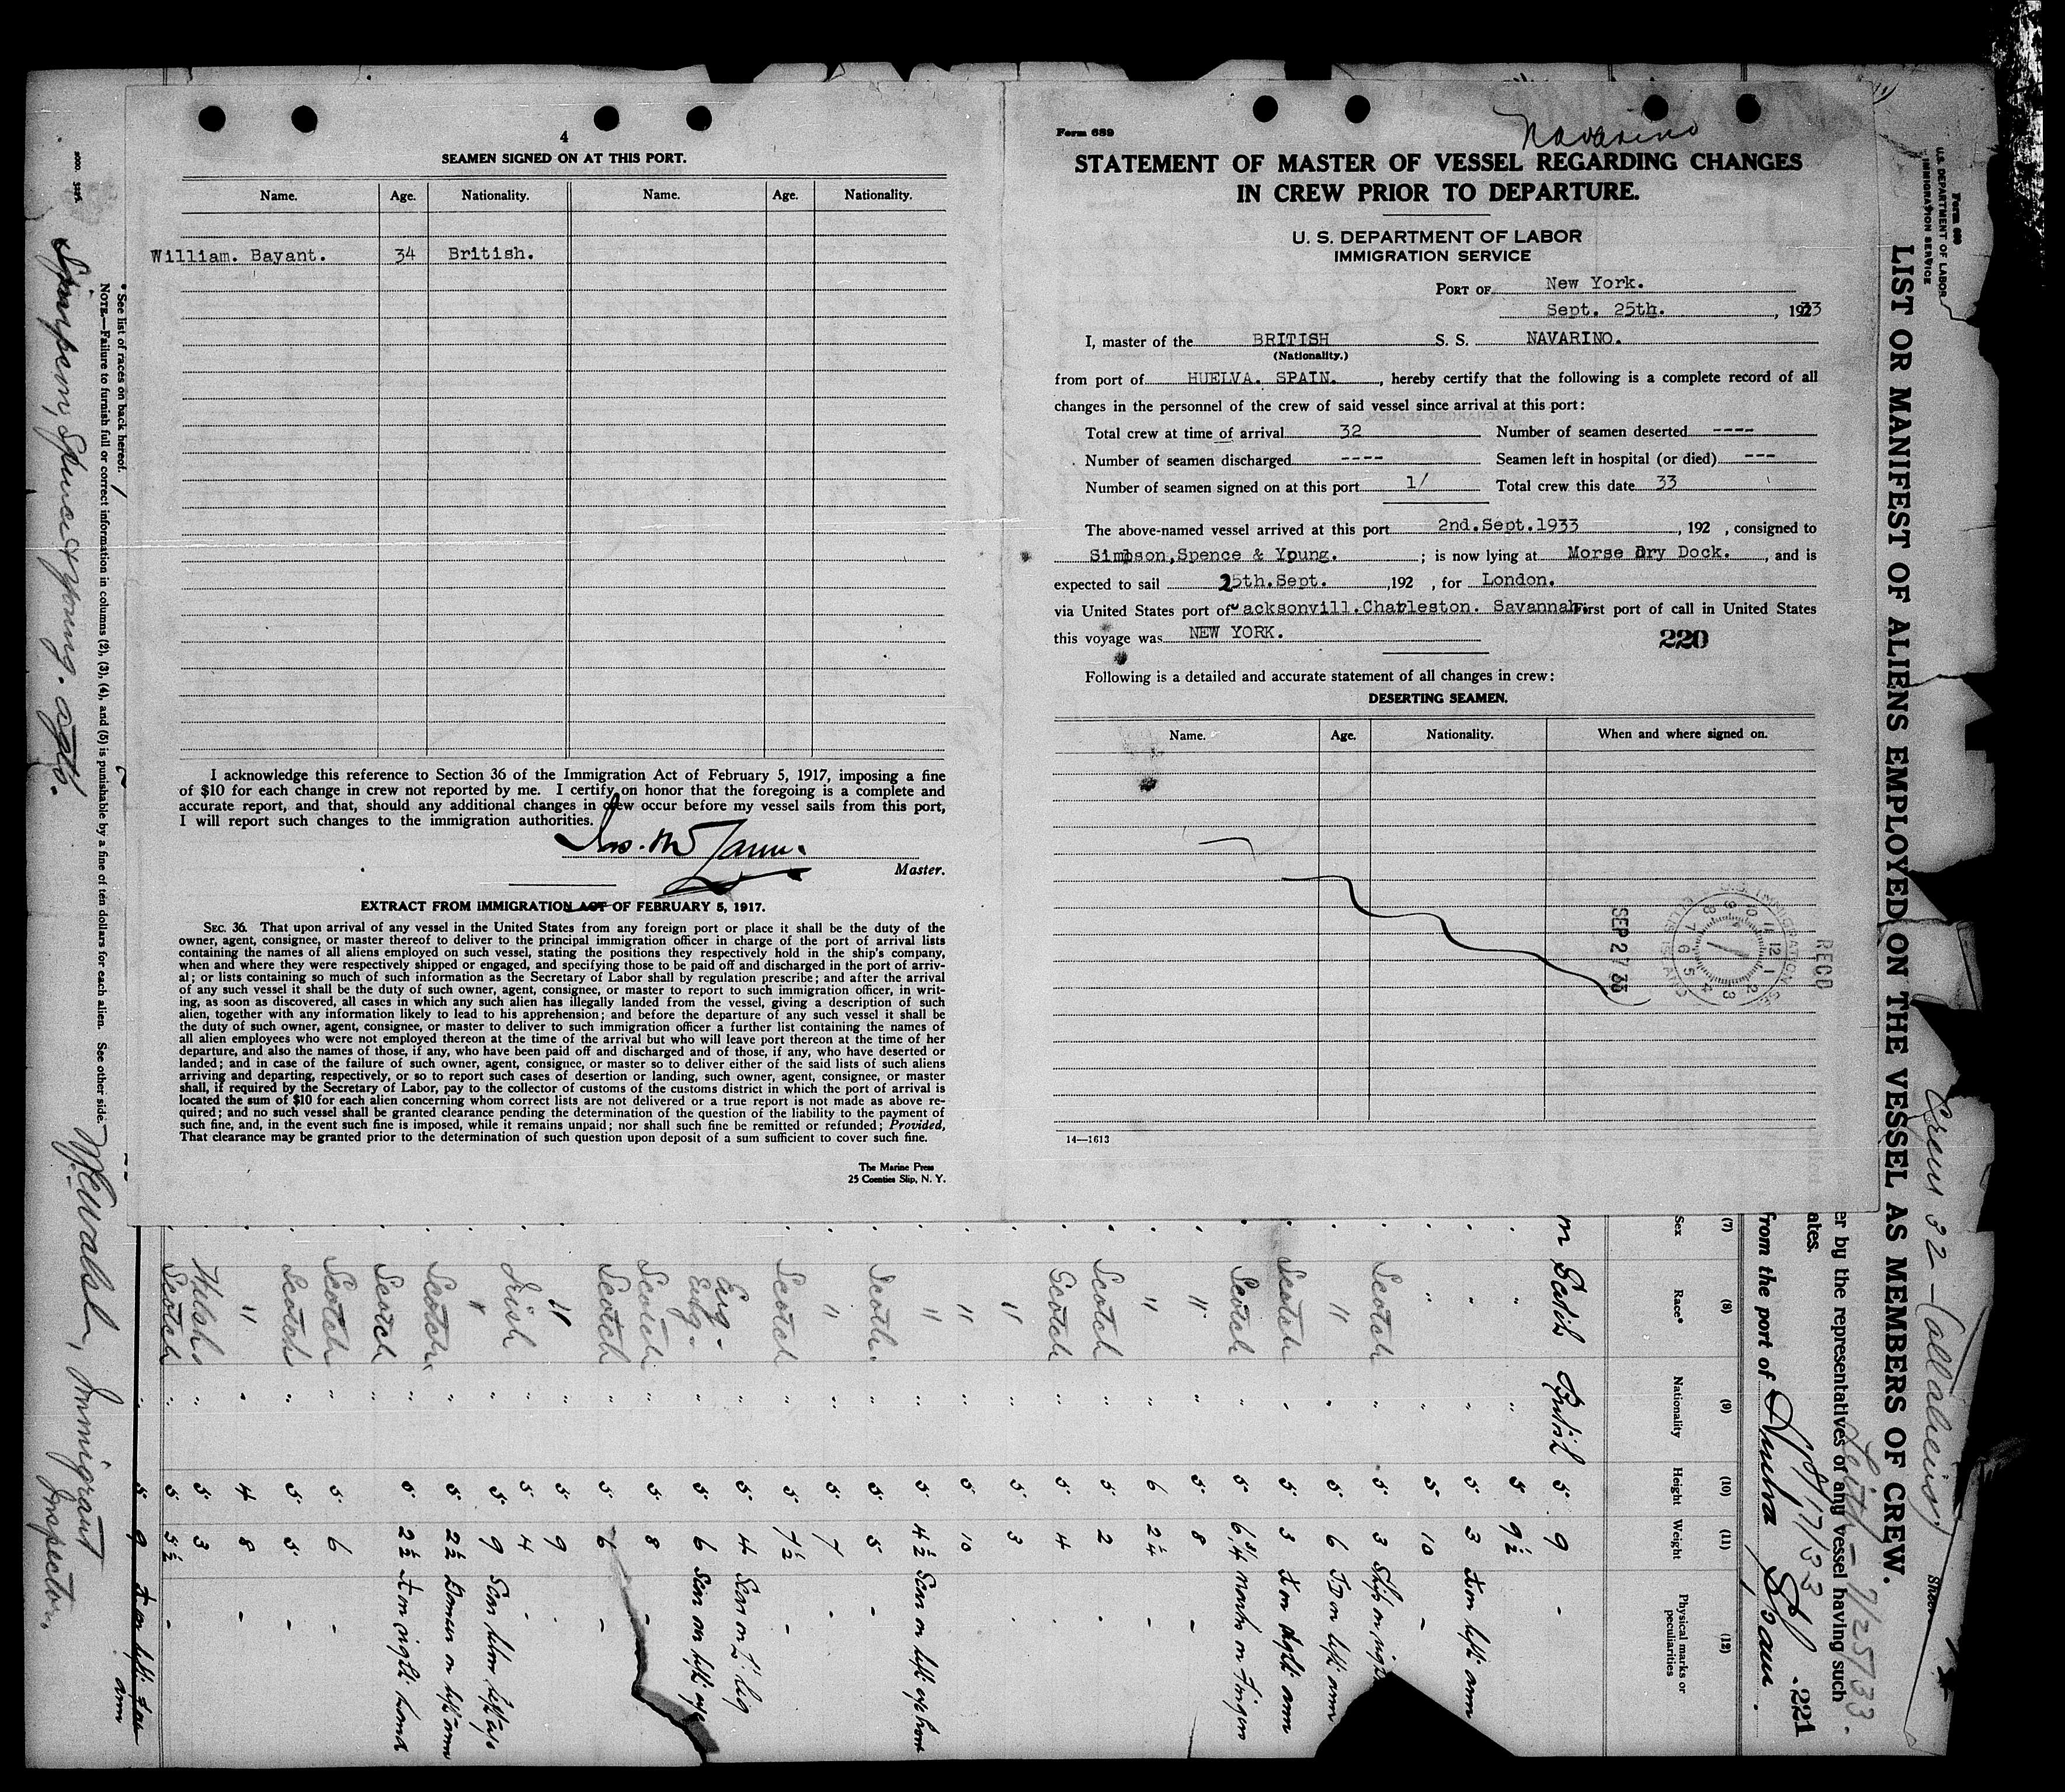 4
SEAMEN SIGNED ON AT THIS PORT.
Name. Age. Nationality. Name. Age. Nationality.
William. Bayant. 34 British.
I acknowledge this reference to Section 36 of the Immigration Act of February 5, 1917, imposing a fine
of $10 for each change in crew not reported by me. I certify on honor that the foregoing is a complete and
accurate report, and that, should any additional changes in crew occur before my vessel sails from this port,
I will report such changes to the immigration authorities.
Master.
EXTRACT FROM IMMIGRATION ACT OF FEBRUARY 5, 1917.
SEC. 36. That upon arrival of any vessel in the United States from any foreign port or place it shall be the duty of the
owner, agent, consignee, or master thereof to deliver to the principal immigration officer in charge of the port of arrival lists
containing the names of all aliens employed on such vessel, stating the positions they respectively hold in the ship's company,
when and where they were respectively shipped or engaged, and specifying those to be paid off and discharged in the port of arriv-
al; or lists containing so much of such information as the Secretary of Labor shall by regulation prescribe; and after the arrival
of any such vessel it shall be the duty of such owner, agent, consignee, or master to report to such immigration officer, in writ-
ing, as soon as discovered, all cases in which any such alien has illegally landed from the vessel, giving a description of such
alien, together with any information likely to lead to his apprehension; and before the departure of any such vessel it shall be
the duty of such owner, agent, consignee, or master to deliver to such immigration officer a further list containing the names of
all alien employees who were not employed thereon at the time of the arrival but who will leave port thereon at the time of her
departure, and also the names of those, if any, who have been paid off and discharged and of those, if any, who have deserted or
landed; and in case of the failure of such owner, agent, consignee, or master so to deliver either of the said lists of such aliens
arriving and departing, respectively, or so to report such cases of desertion or landing, such owner, agent, consignee, or master
shall, if required by the Secretary of Labor, pay to the collector of customs of the customs district in which the port of arrival is
located the sum of $10 for each alien concerning whom correct lists are not delivered or a true report is not made as above re-
quired; and no such vessel shall be granted clearance pending the determination of the question of the liability to the payment of
such fine, and, in the event such fine is imposed, while it remains unpaid; nor shall such fine be remitted or refunded; Provided,
That clearance may be granted prior to the determination of such question upon deposit of a sum sufficient to cover such fine.
The Marine Press
25 Coenties Slip, N. Y.
Form 689
Navarino
STATEMENT OF MASTER OF VESSEL REGARDING CHANGES
IN CREW PRIOR TO DEPARTURE.
U. S. DEPARTMENT OF LABOR
IMMIGRATION SERVICE
PORT OF New York.
Sept. 25th. , 1933
I, master of the BRITISH S. S. NAVARINO.
(Nationality.)
from port of HUELVA. SPAIN. , hereby certify that the following is a complete record of all
changes in the personnel of the crew of said vessel since arrival at this port:
Total crew at time of arrival 32 Number of seamen deserted ----
Number of seamen discharged ---- Seamen left in hospital (or died) ---
Number of seamen signed on at this port 1/ Total crew this date 33
The above-named vessel arrived at this port 2nd.Sept.1933 , 192 , consigned to
Simpson,Spence & Young. ; is now lying at Morse Dry Dock. , and is
expected to sail 25th.Sept. 192 , for London.
via United States port of Jacksonvill.Charleston. Savannah. First port of call in United States
this voyage was NEW YORK.
220
Following is a detailed and accurate statement of all changes in crew:
DESERTING SEAMEN.
Name. Age. Nationality. When and where signed on.
RECD
SEP 27 33
14—1613
Form 680
U.S. DEPARTMENT OF LABOR
IMMIGRATION SERVICE
LIST OR MANIFEST OF ALIENS EMPLOYED ON THE VESSEL AS MEMBERS OF CREW.
Crew 32 - (all aliens)
Sheet
er by the representatives of any vessel having such
Leith - 7/25/33.
ates.
from the port of Huelva Spain
221
(7) (8) (9) (10) (11) (12)
Sex Race* Nationality Height Weight Physical marks or peculiarities
m Scotch British 5 9 -
" " 5 9½
" " 5 3 + on left arm
" " 5 10 -
Scotch " 5 3
" " 5 6 TD on left arm
Scotch " 5 3 + on right arm
Scotch " 5 6¾ marks on Fingers
" " 5 8 -
" " 6 2¼ -
Scotch " 5 2
Scotch " 5 4
" " 5 3
" " 5 10
" " 5 4½
Scotch " 5 5 -
" " 5 7 -
Scotch " 5 7½ -
Eng. " 5 4
Eng. " 5 6 Scar on left eye
Scotch " 5 8 -
Scotch " 5 6 -
" " 5 9
Irish " 5 4 -
" 5 9
Scotch " 5 2½
Scotch " 5 2½ + on right hand
Scotch " 5 6 -
Scotch " 5 5 -
" " 4 8 -
Welsh " 5 3
Scotch " 5 5½ -
5 9
* See list of races on back hereof.
NOTE.—Failure to furnish full or correct information in columns (2), (3), (4), and (5) is punishable by a fine of ten dollars for each alien. See other side.
Simpson, Spence & Young. agts.
Walsh, Immigrant
Inspector.